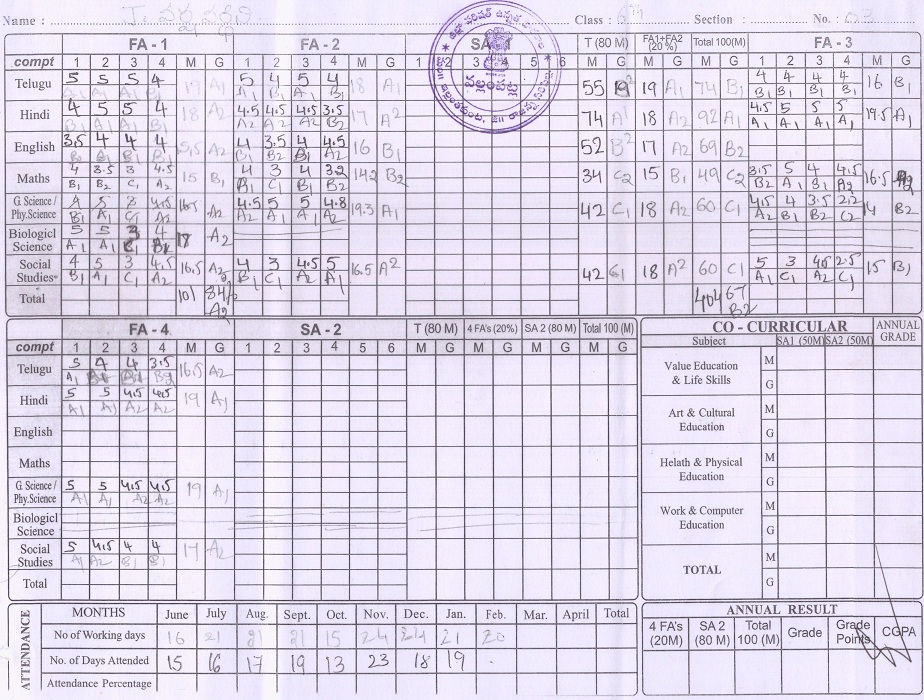 Name : J. Class : 6th Section : No. : 03
FA - 1 FA - 2 SA - 1 T (80 M) FA1+FA2 (20 %) Total 100(M) FA - 3
compt 1 2 3 4 M G 1 2 3 4 M G 1 2 3 4 5 6 M G M G M G 1 2 3 4 M G
Telugu 5 5 5 4 5 4 5 4 18 A1 55 B2 19 A1 74 B1 4 4 4 4 16 B1
B1 B1 B1 B1
Hindi 4 5 5 4 18 A2 4.5 4.5 4.5 3.5 17 A2 74 A1 18 A2 92 A1 4.5 5 5 5 19.5 A1
A2 A2 A2 B2 A1 A1 A1 A1
English 3.5 4 4 4 15.5 A2 4 3.5 4 4.5 16 B1 52 B2 17 A2 69 B2
B1 B2 B1 A2
Maths 4 3.5 3 4.5 15 B1 4 3 4 3.2 14.2 B2 34 C2 15 B1 49 C2 3.5 5 4 4.5 16.5
B1 B2 C1 A2 B1 C1 B1 B2 B2 A1 B1 A2
G. Science / Phy.Science 4 5 3 4.5 16.5 A2 4.5 5 5 4.8 19.3 A1 42 C1 18 A2 60 C1 4.5 4 3.5 2.2 14 B2
B1 A1 C1 A2 A2 A1 A1 A2 B1 B2 C2
Biologicl Science 5 5 3 4 18 A2
A1 A1 B2
Social Studies 4 5 3 4.5 16.5 A2 4 3 4.5 5 16.5 A2 42 C1 18 A2 60 C1 5 3 4.5 2.5 15 B1
B1 A1 C1 A2 B1 C1 A2 A1 A1 C1 A2 C1
Total 101 84 A2 404 67 B2
FA - 4 SA - 2 T (80 M) 4 FA's (20%) SA 2 (80 M) Total 100 (M)
compt 1 2 3 4 M G 1 2 3 4 5 6 M G M G M G M G
Telugu 5 4 4 3.5 16.5 A2
Hindi 5 5 4.5 4.5 19 A1
A1 A1 A2 A2
English
Maths
G. Science / Phy.Science 5 5 4.5 4.5 19 A1
A1 A1 A2 A2
Biologicl Science
Social Studies 5 4.5 4 4 17 A2
A1 A2 B1 B1
Total
CO - CURRICULAR ANNUAL GRADE
Subject SA1 (50M) SA2 (50M)
Value Education & Life Skills M G
Art & Cultural Education M G
Helath & Physical Education M G
Work & Computer Education M G
TOTAL M G
ATTENDANCE
MONTHS June July Aug. Sept. Oct. Nov. Dec. Jan. Feb. Mar. April Total
No of Working days 16 21 21 21 15 24 24 21 20
No. of Days Attended 15 16 17 19 13 23 18 19 -
Attendance Percentage
ANNUAL RESULT
4 FA's (20M) SA 2 (80 M) Total 100 (M) Grade Grade Points CGPA